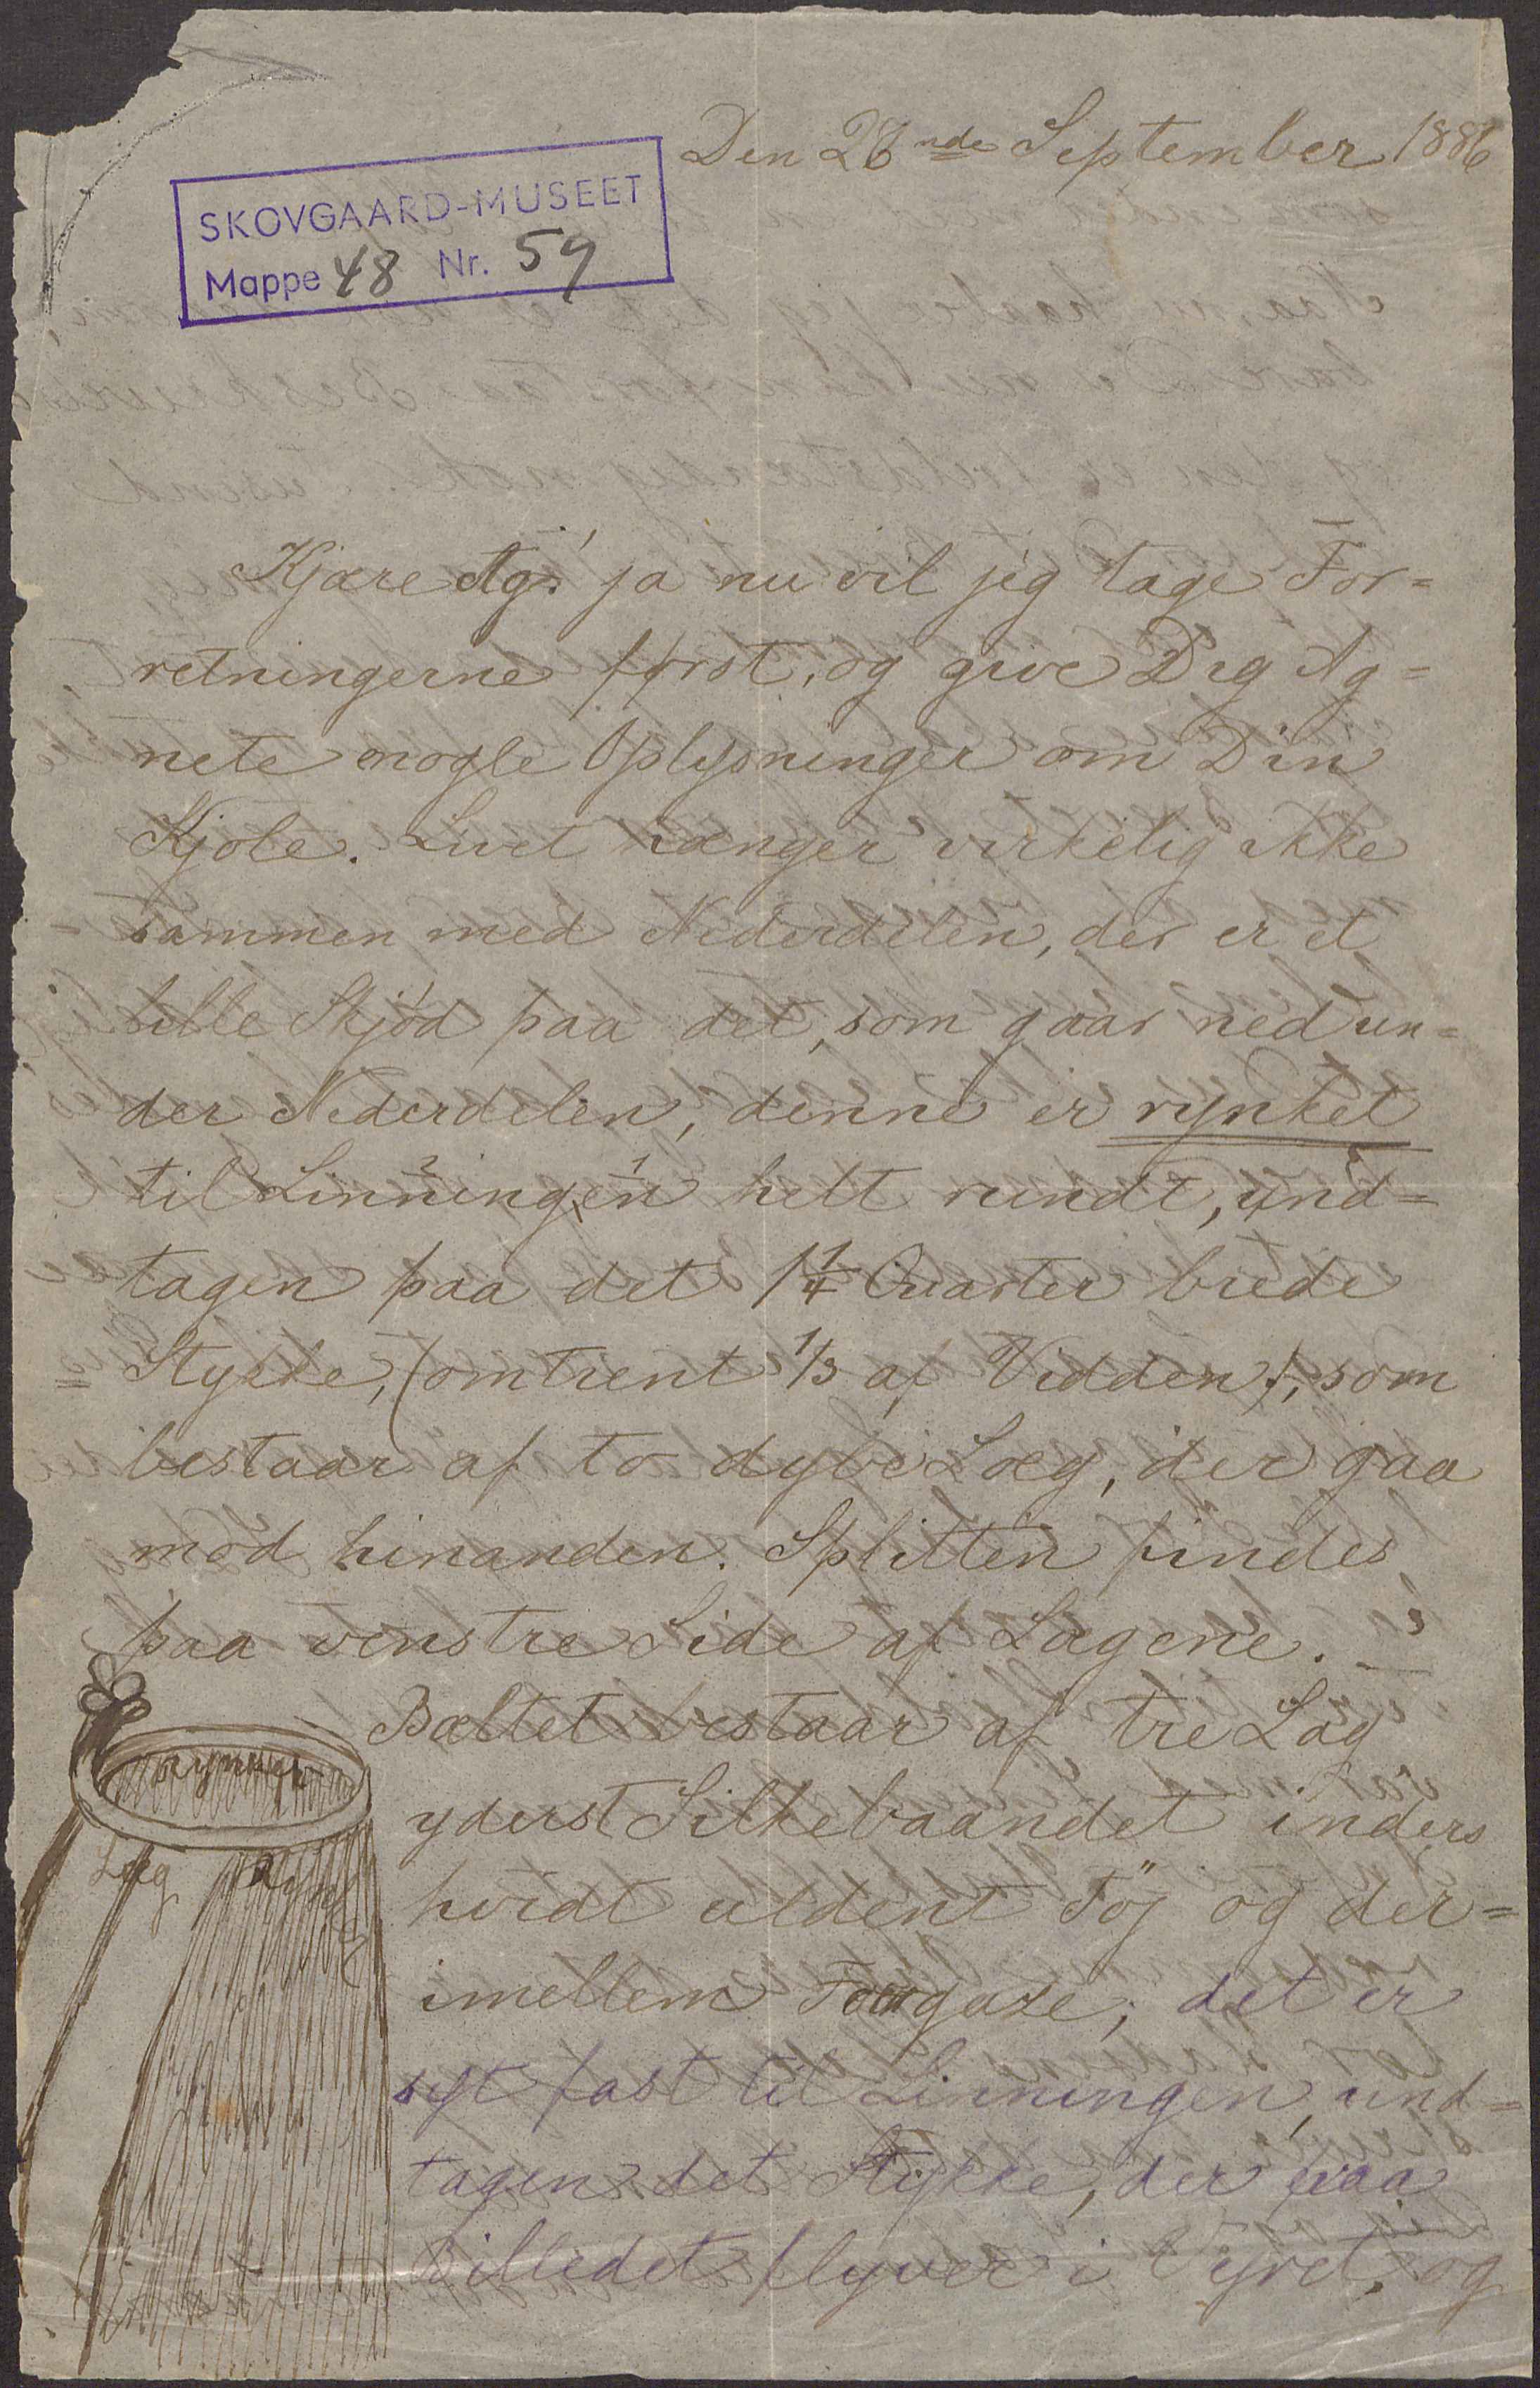 Den 28nde September 1886
SKOVGAARD-MUSEET
Mappe 48 Nr. 59
Kjære Ag! ja nu vil jeg tage For=
retningerne først, og give Dig Ag=
nete nogle Oplysninger om Din
Kjole. Livet hænger virkelig ikke
sammen med Nederdelen, der er et
lille Skjød paa det, som gaar ned un=
der Nederdelen, denne er rynket
til Linningen helt rundt, und=
tagen paa det 1 1/4 Quarter brede
Stykke, (omtrent 1/3 af Vidden), som
bestaar af to dybe Læg, der gaa
mod hinanden. Splitten findes
paa venstre Side af Lægene.
Bæltet bestaar af tre Lag
yderst Silkebaandet inders
hvidt uldent Töj og der=
imellem Foergaze; det er
syt fast til Linningen, und=
tagen det Stykke, der paa
Billedet flyver i Vejret, og
rynket
Læg
rynket